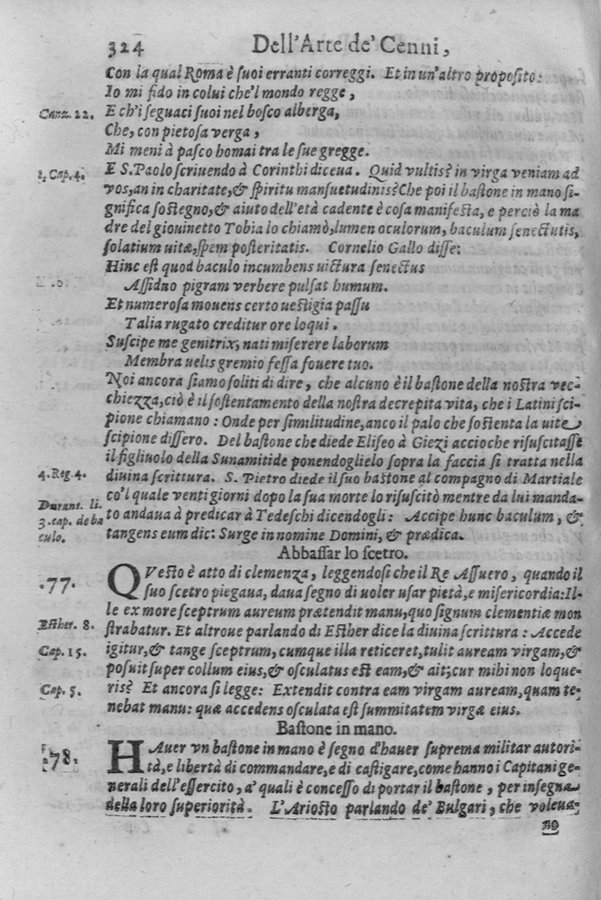 324 Dell'Arte de' Cenni,
Con la qual Roma è suoi erranti correggi. Et in un'altro proposito:
Io mi fido in colui che'l mondo regge,
Canz. 22. E ch'i seguaci suoi nel bosco alberga,
Che, con pietosa verga,
Mi meni à pasco homai tra le sue gregge.
1. Cap. 4. E S. Paolo scriuendo à Corinthi diceua. Quid vultis? in virga veniam ad
vos, an in charitate, & spiritu mansuetudinis? Che poi il bastone in mano si-
gnifica sostegno, & aiuto dell'età cadente è cosa manifesta, e perciò la ma
dre del giouinetto Tobia lo chiamò, lumen oculorum, baculum senectutis,
solatium uitæ, spem posteritatis. Cornelio Gallo disse:
Hinc est quod baculo incumbens uictura senectus
Assiduo pigram verbere pulsat humum.
Et numerosa mouens certo uestigia passu
Talia rugato creditur ore loqui.
Suscipe me genitrix, nati miserere laborum
Membra uelis gremio fessa fouere tuo.
Noi ancora siamo soliti di dire, che alcuno è il bastone della nostra vec-
chiezza, ciò è il sostentamento della nostra decrepita vita, che i Latini sci-
pione chiamano: Onde per similitudine, anco il palo che sostenta la uite
scipione dissero. Del bastone che diede Eliseo à Giezi accioche risuscitasse
il figliuolo della Sunamitide ponendoglielo sopra la faccia si tratta nella
4. Reg. 4. diuina scrittura. S. Pietro diede il suo bastone al compagno di Martiale
Durant. li. co'l quale venti giorni dopo la sua morte lo risuscitò mentre da lui manda-
3. cap. de ba to andaua à predicar à Tedeschi dicendogli: Accipe hunc baculum, &
culo. tangens eum dic: Surge in nomine Domini, & prædica.
Abbassar lo scetro.
.77. QVesto è atto di clemenza, leggendosi che il Re Assuero, quando il
suo scetro piegaua, daua segno di uoler usar pietà, e misericordia: Il-
le ex more sceptrum aureum prætendit manu, quo signum clementiæ mon
Esther. 8. strabatur. Et altroue parlando di Esther dice la diuina scrittura: Accede
Cap. 15. igitur, & tange sceptrum, cumque illa reticeret, tulit auream virgam, &
posuit super collum eius, & osculatus est eam, & ait; cur mihi non loque-
Cap. 5. ris? Et ancora si legge: Extendit contra eam virgam auream, quam te-
nebat manu: quæ accedens osculata est summitatem virgæ eius.
Bastone in mano.
.78. HAuer vn bastone in mano è segno d'hauer suprema militar autori-
tà, e libertà di commandare, e di castigare, come hanno i Capitani ge-
nerali dell'essercito, a' quali è concesso di portar il bastone, per insegna
della loro superiorità. L'Ariosto parlando de' Bulgari, che voleua-
no